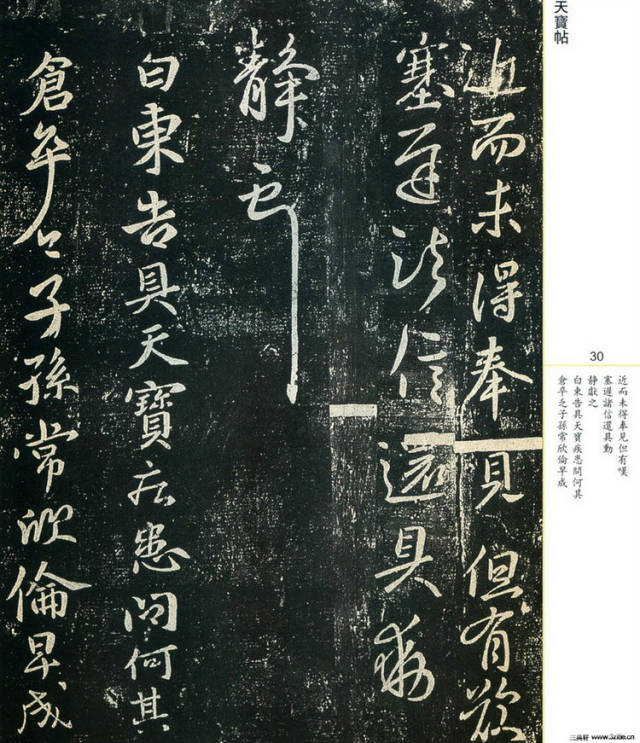 天寶帖
近而未得奉見但有歎
塞遲諸信還具動
靜獻之
白東告具天寶疾患問何其
倉卒乏子孫常欣倫早成
30
近而未得奉見但有嘆
塞遲諸信還具動
靜獻之
白東告具天寶疾患問何其
倉卒乏子孫常欣倫早成
www.3zitie.cn